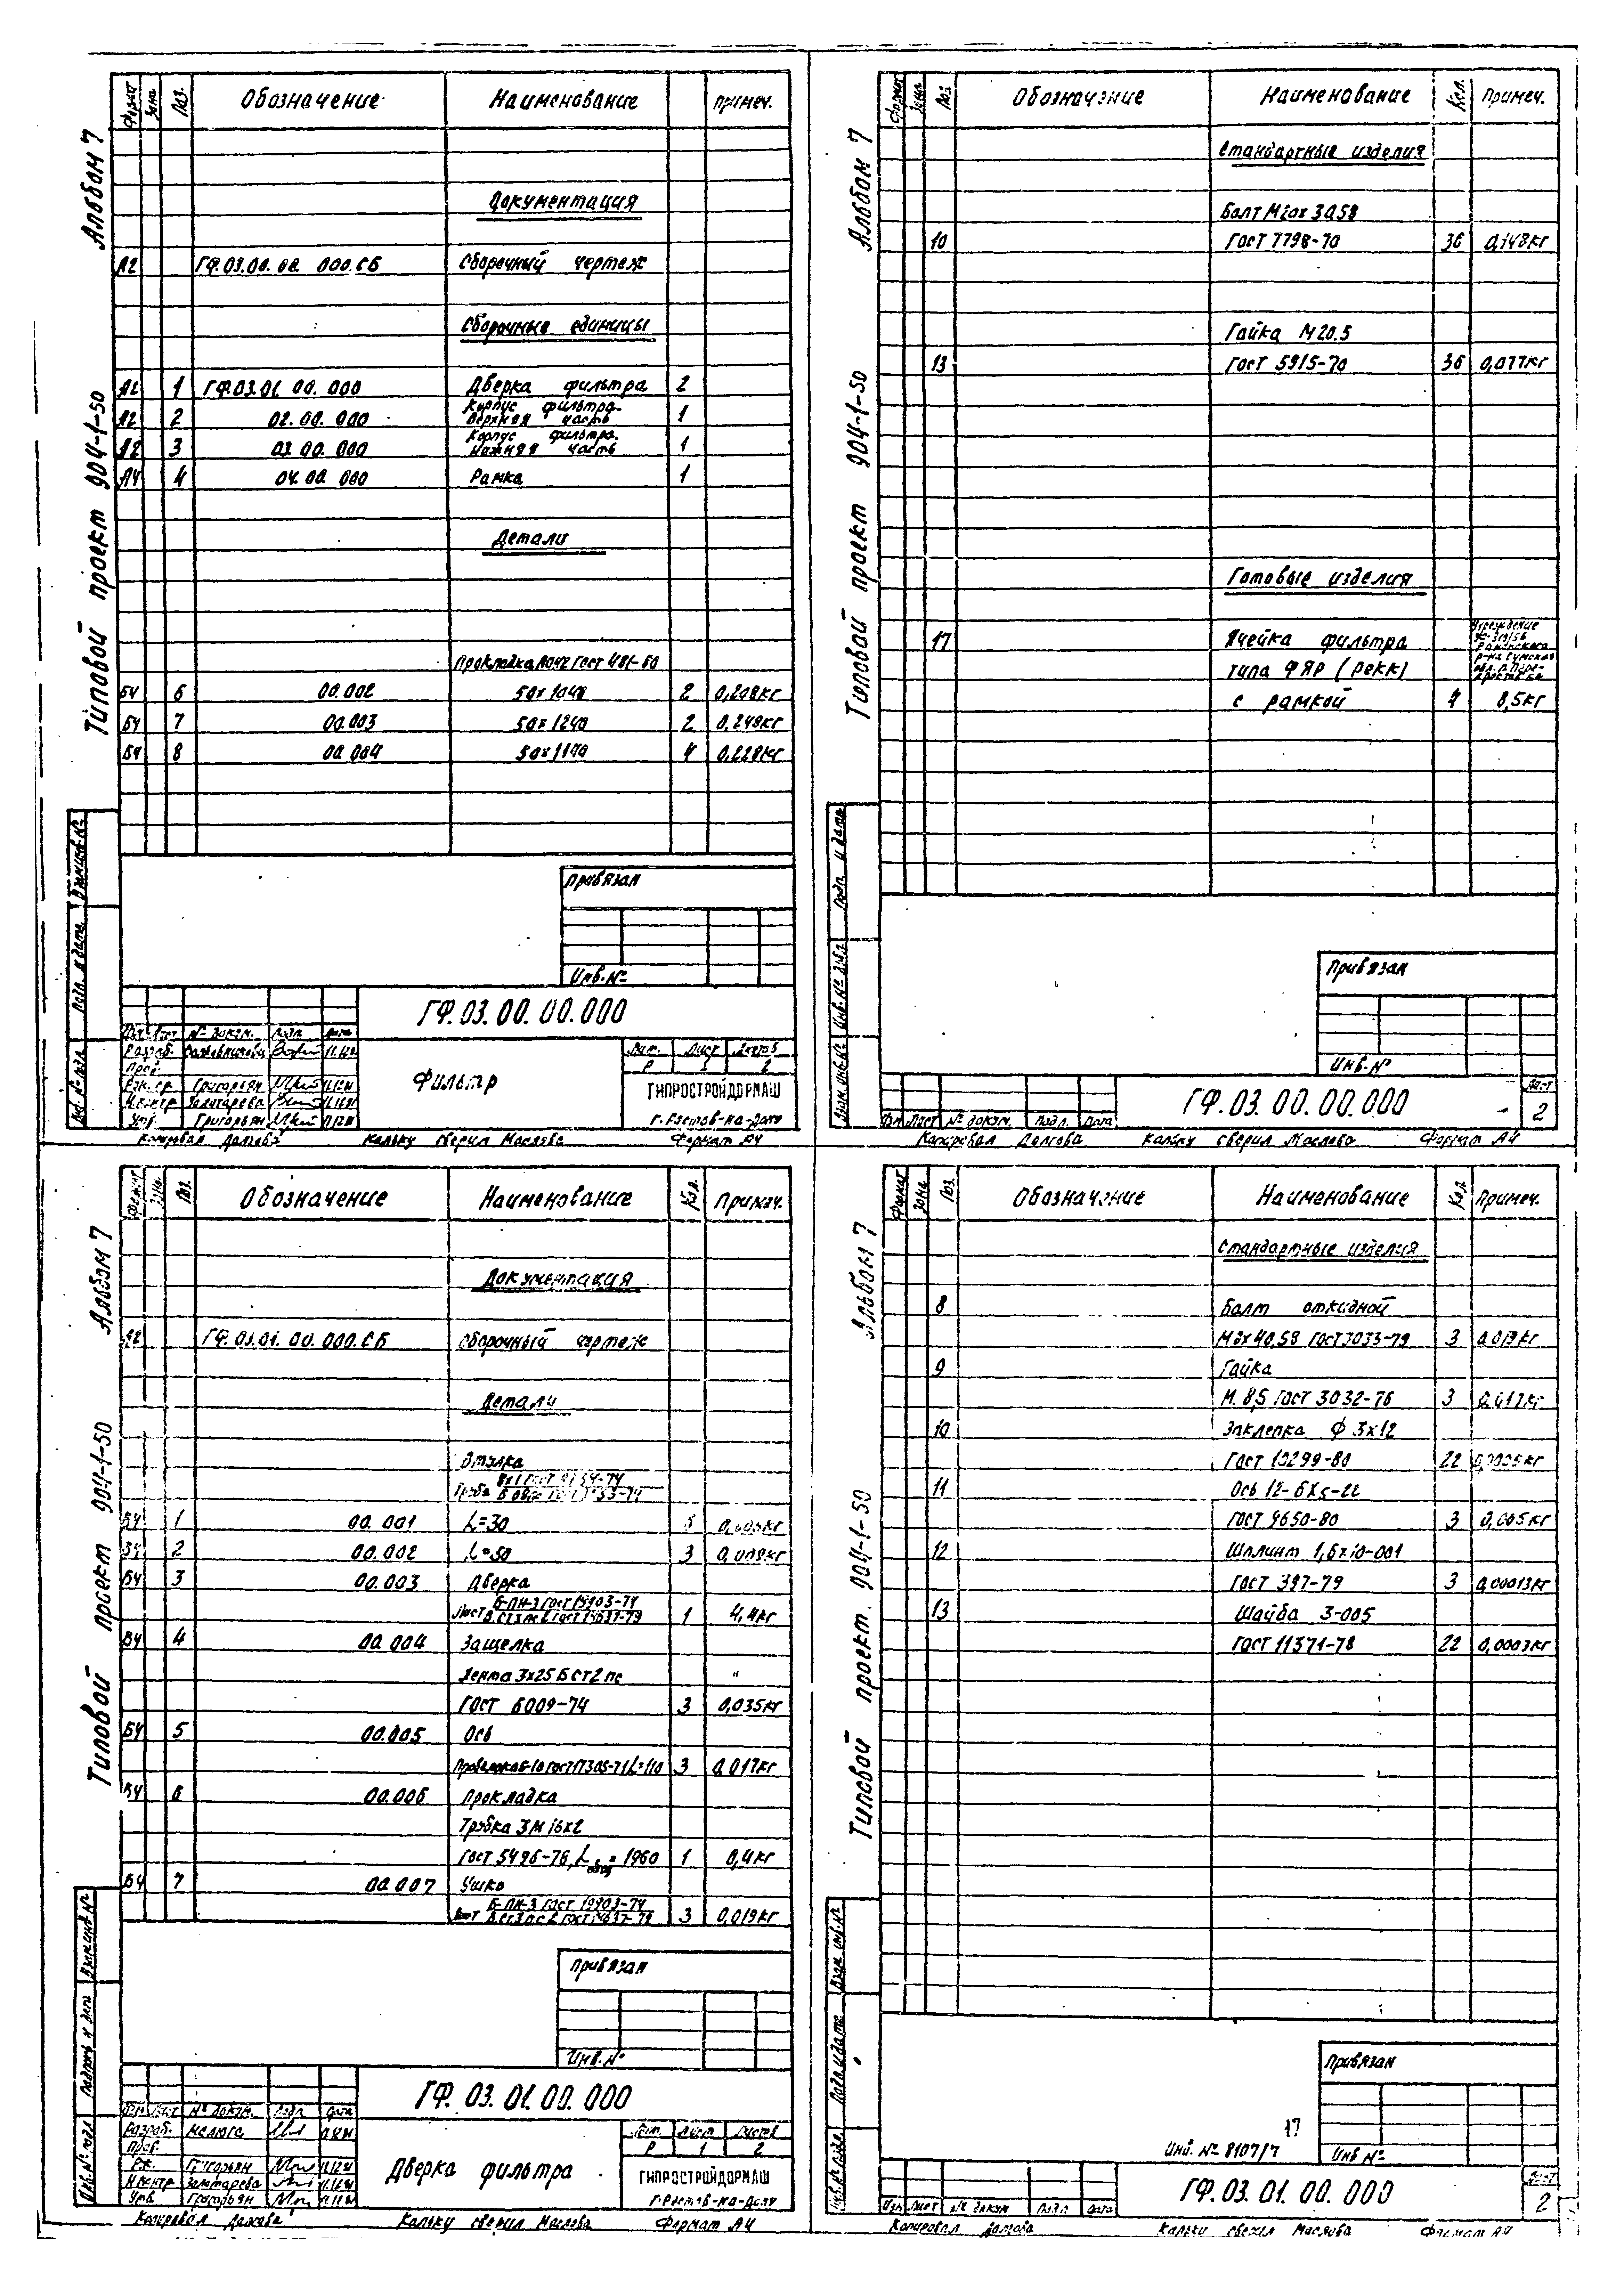 Альбом 7
Типовой проект 904-1-50
Формат Зона Поз. Обозначение Наименование Примеч.
Документация
А2 ГФ.03.00.00.000.СБ Сборочный чертеж
Сборочные единицы
А2 1 ГФ.03.01.00.000 Дверка фильтра 2
Корпус фильтра.
А2 2 02.00.000 Верхняя часть 1
Корпус фильтра.
А2 3 03.00.000 Нижняя часть 1
А4 4 04.00.000 Рамка 1
Детали
Прокладка ПОН2 Гост 481-80
БЧ 6 00.002 50х1040 2 0,208кг
БЧ 7 00.003 50х1240 2 0,248кг
БЧ 8 00.004 50х1140 4 0,228кг
Привязан
Инв.№
ГФ.03.00.00.000
Изм Лист № докум. Подп. Дата
Разраб.
Пров.
Рук.гр. Григорьян
Н.контр Золотарева
Утв. Григорьян
Фильтр
Лит. Лист Листов
Р 1 2
ГИПРОСТРОЙДОРМАШ
г.Ростов-на-Дону
Инв.№ подл. Подп. и дата Взам.инв.№
Копировал Долгова Кальку сверил Маслова Формат А4
Альбом 7
Типовой проект 904-1-50
Формат Зона Поз. Обозначение Наименование Кол. Примеч.
Стандартные изделия
Болт М20х30.58
10 ГОСТ 7798-70 36 0,148кг
Гайка М20.5
13 ГОСТ 5915-70 36 0,077кг
Готовые изделия
Учреждение
17 Ячейка фильтра
типа ФЯР (рекк)
с рамкой 4 8,5кг
Привязан
Инв.№
ГФ.03.00.00.000
Лист
2
Изм Лист № докум. Подп. Дата
Взам.инв.№ Инв.№ дубл. Подп. и дата
Копировал Долгова Кальку сверил Маслова Формат А4
Альбом 7
Типовой проект 904-1-50
Формат Зона Поз. Обозначение Наименование Кол. Примеч.
Документация
А2 ГФ.03.01.00.000.СБ Сборочный чертеж
Детали
Втулка
Труба
БЧ 1 00.001 L=30
БЧ 2 00.002 L=50 3 0,008кг
БЧ 3 00.003 Дверка
Лист Б-ПН-3 ГОСТ 19903-74 / В.Ст3пс2 ГОСТ 14637-79 1 4,4кг
БЧ 4 00.004 Защелка
Лента 3х25 Б Ст2пс "
ГОСТ 6009-74 3 0,035кг
БЧ 5 00.005 Ось
L=110 3 0,017кг
БЧ 6 00.006 Прокладка
Трубка 3М 16х2
ГОСТ 5496-78, L = 1960 1 0,4кг
БЧ 7 00.007 Ушко
Лист Б-ПН-3 ГОСТ 19903-74 / В.Ст3пс2 ГОСТ 14637-79 3 0,019кг
Привязан
Инв.№
ГФ.03.01.00.000
Изм Лист № докум. Подп. Дата
Разраб. Мелюга
Пров.
Григорьян
Н.контр Золотарева
Утв. Григорьян
Дверка фильтра
Лит. Лист Листов
Р 1 2
ГИПРОСТРОЙДОРМАШ
г.Ростов-на-Дону
Инв.№ подл. Подпись и дата Взам.инв.№
Копировал Долгова Кальку сверил Маслова Формат А4
Альбом 7
Типовой проект 904-1-50
Формат Зона Поз. Обозначение Наименование Кол. Примеч.
Стандартные изделия
8 Болт откидной
М8х40,58 ГОСТ 3033-79 3 0,019кг
9 Гайка
М.8,5 ГОСТ 3032-76 3
10 Заклепка Ф 3х12
ГОСТ 10299-80 22
11 Ось
ГОСТ 9650-80 3 0,005кг
12 Шплинт 1,6х10-001
ГОСТ 397-79 3 0,00013кг
13 Шайба 3-005
ГОСТ 11371-78 22 0,0003кг
Привязан
17
Инв. № 8107/7
Инв №
ГФ.03.01.00.000
Лист
2
Изм Лист № докум Подп Дата
Инв.№ подл. Подп. и дата Взам. инв.№
Копировал Долгова Кальку сверил Маслова Формат А4